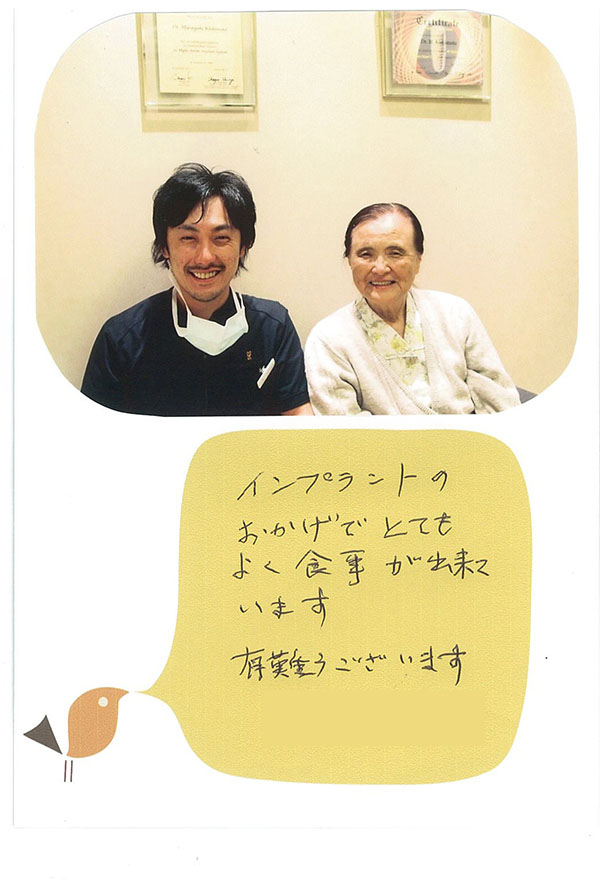 Certificate
インプラントの
おかげで とても
よく 食事 が出来て
います
有難うございます